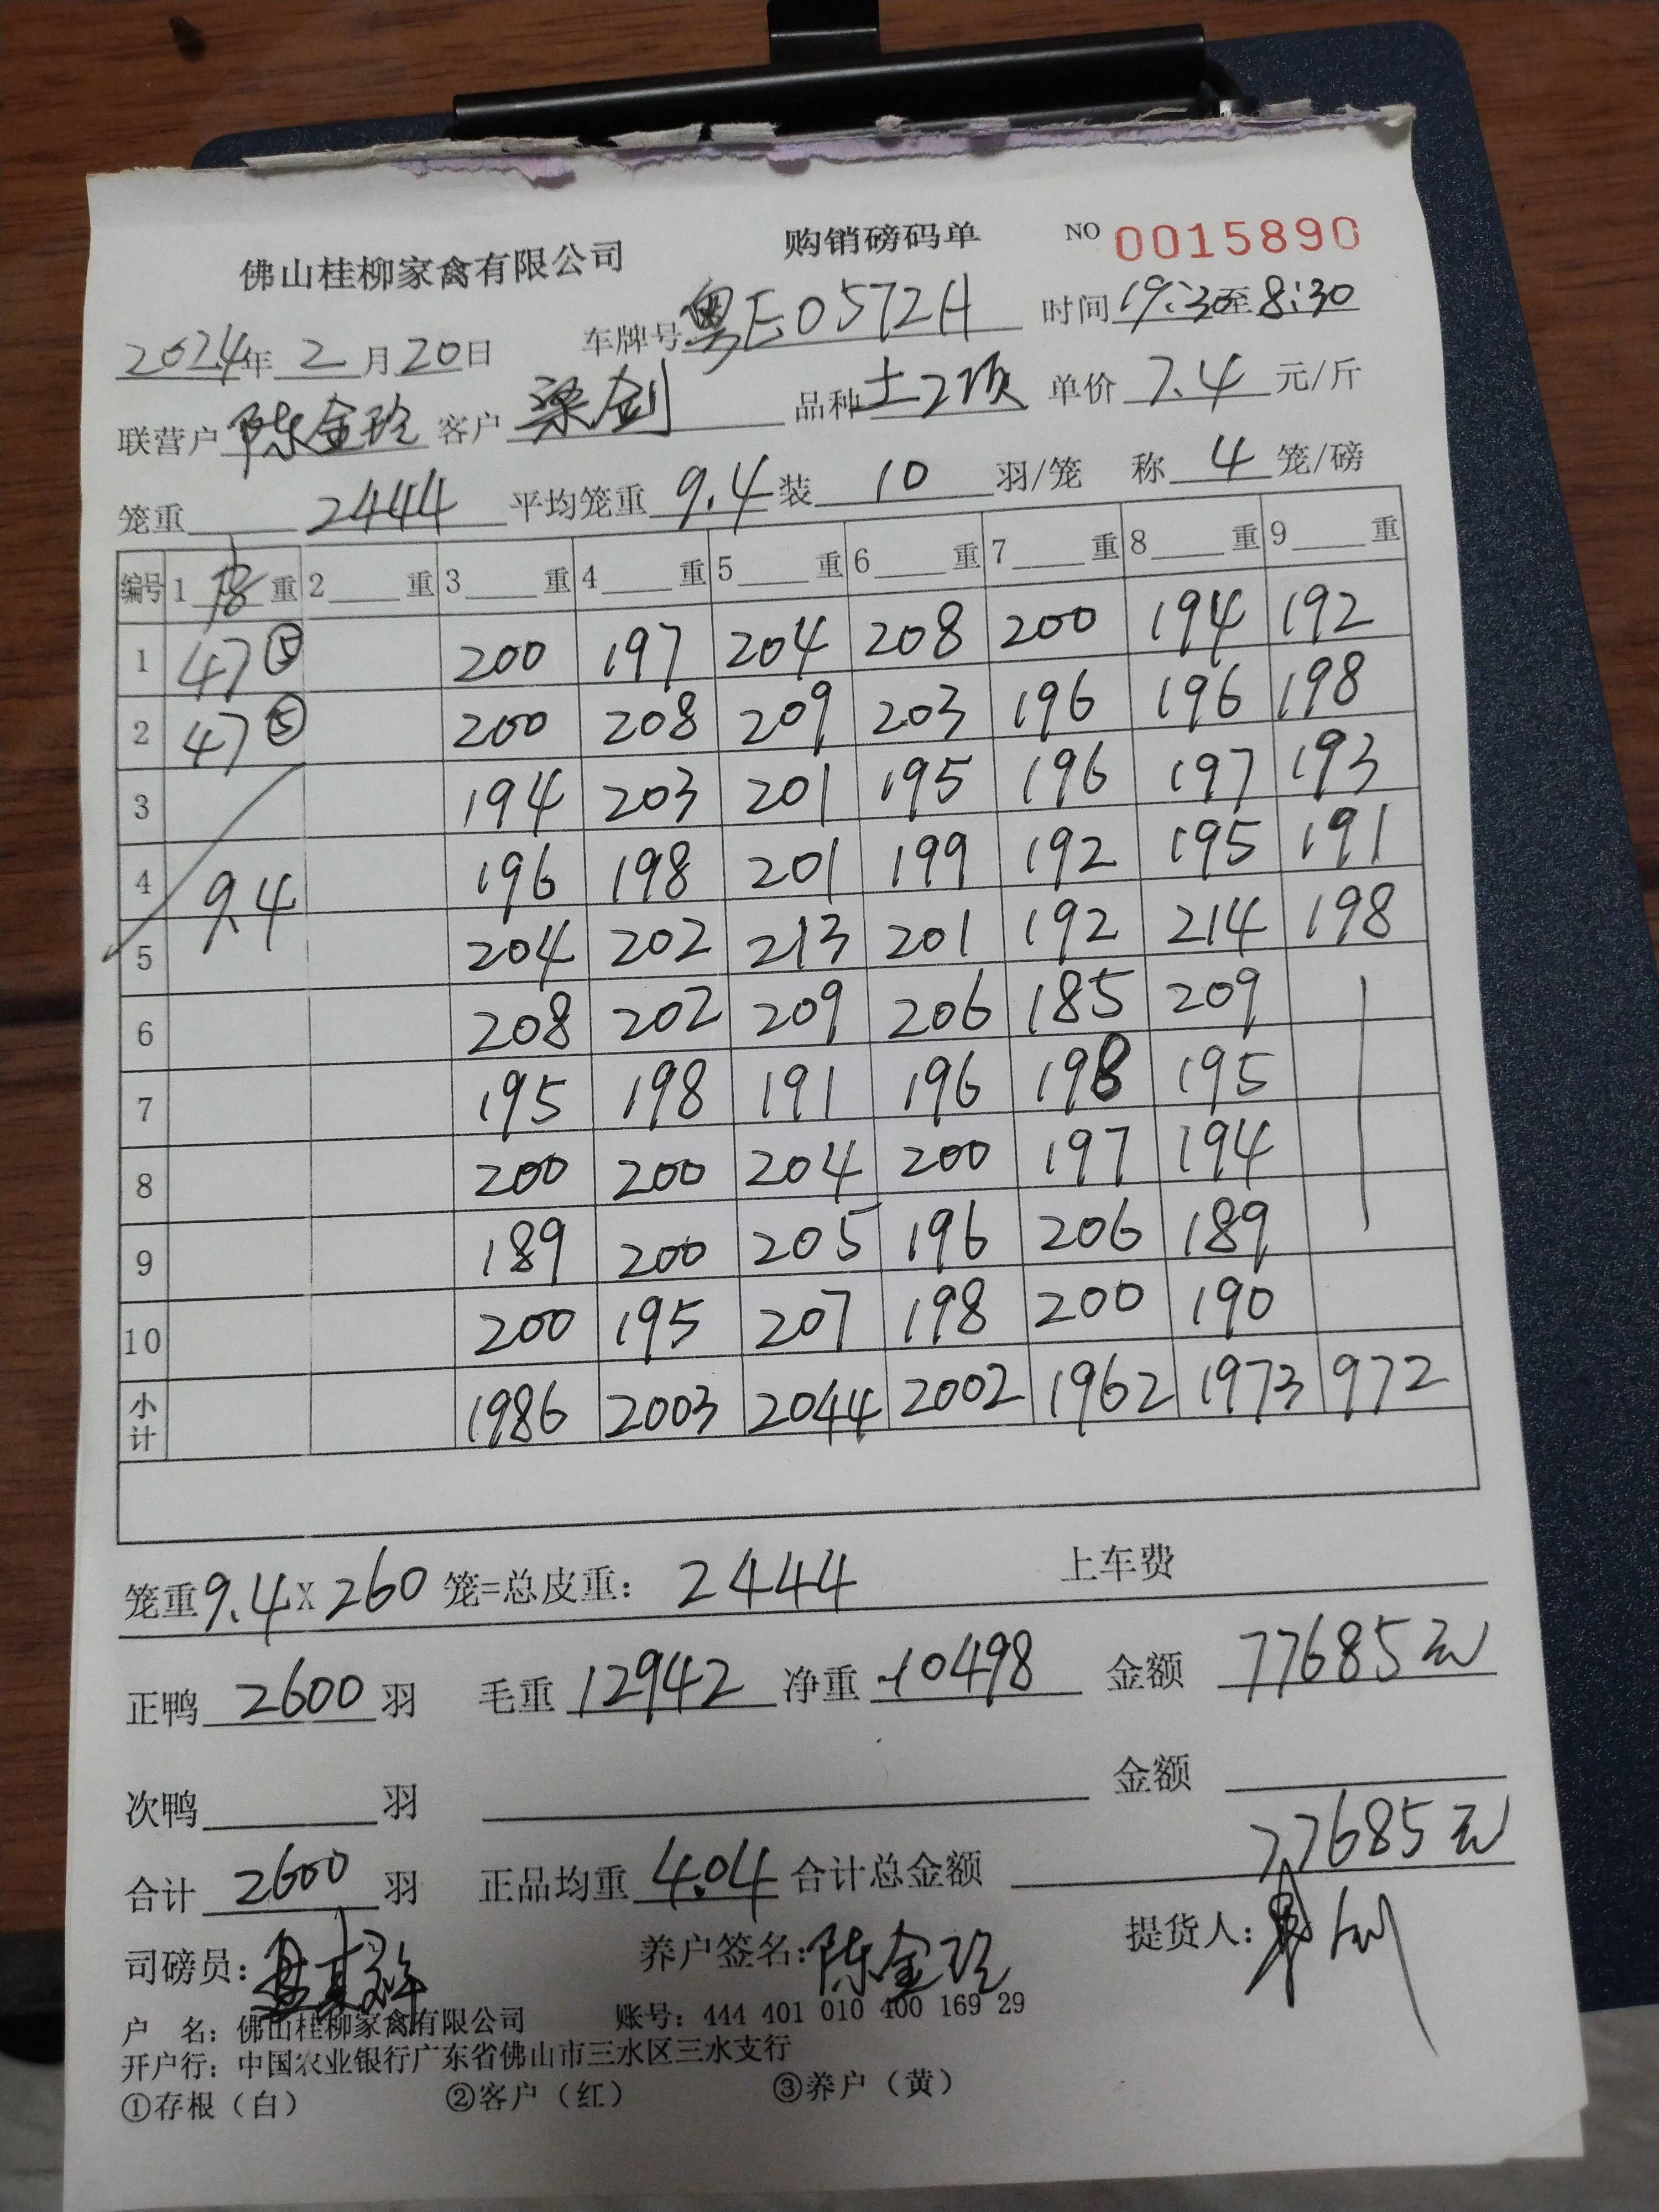 佛山桂柳家禽有限公司 购销磅码单 NO 0015890
2024年 2 月 20 日 车牌号 粤E0572H 时间 19:30 至 8:30
联营户 陈金玲 客户 梁剑 品种 土2项 单价 7.4 元/斤
笼重 2444 平均笼重 9.4 装 10 羽/笼 称 4 笼/磅
编号 1 重 2 重 3 重 4 重 5 重 6 重 7 重 8 重 9 重
1 47⑤ 200 197 204 208 200 194 192
2 47⑤ 200 208 209 203 196 196 198
3 194 203 201 195 196 197 193
4 9.4 196 198 201 199 192 195 191
5 204 202 213 201 192 214 198
6 208 202 209 206 185 209
7 195 198 191 196 198 195
8 200 200 204 200 197 194
9 189 200 205 196 206 189
10 200 195 207 198 200 190
小计 1986 2003 2044 2002 1962 1973 972
笼重 9.4 X 260 笼=总皮重: 2444 上车费
正鸭 2600 羽 毛重 12942 净重 10498 金额 77685元
次鸭 羽 金额
合计 2600 羽 正品均重 4.04 合计总金额 77685元
司磅员: 养户签名: 陈金玲 提货人:
户 名: 佛山桂柳家禽有限公司 账号: 444 401 010 400 169 29
开户行: 中国农业银行广东省佛山市三水区三水支行
①存根（白） ②客户（红） ③养户（黄）